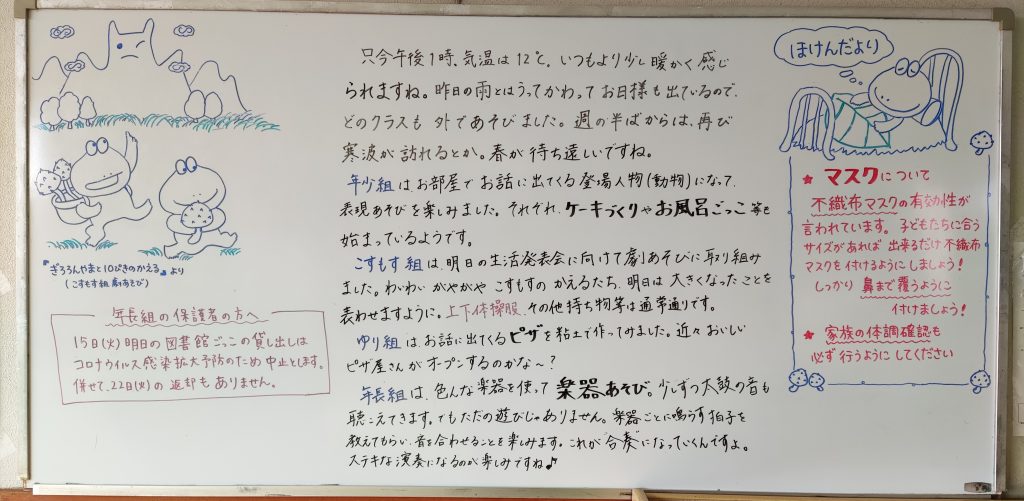 『ぎろろんやまと10ぴきのかえる』より
(こすもす組 劇あそび)
年長組の保護者の方へ
15日(火)明日の図書館ごっこの貸し出しは
コロナウイルス感染拡大予防のため中止とします。
併せて、22日(火)の返却もありません。
只今午後1時、気温は12℃。いつもより少し暖かく感じ
られますね。昨日の雨とはうってかわってお日様も出ているので、
どのクラスも外であそびました。週の半ばからは、再び
寒波が訪れるとか。春が待ち遠しいですね。
年少組はお部屋でお話に出てくる登場人物(動物)になって、
表現あそびを楽しみました。それぞれ、ケーキづくりやお風呂ごっこ等も
始まっているようです。
こすもす組は、明日の生活発表会に向けて劇あそびに取り組み
ました。わいわいがやがやこすもすのかえるたち、明日は大きくなったことを
表わせますように。上下体操服、その他持ち物等は通常通りです。
ゆり組はお話に出てくるピザを粘土で作ってみました。近々おいしい
ピザ屋さんがオープンするのかな～?
年長組は、色んな楽器を使って楽器あそび。少しずつ太鼓の音も
聴こえてきます。でもただの遊びじゃありません。楽器ごとに鳴らす拍子を
教えてもらい、音を合わせることを楽しみます。これが"合奏"になっていくんですよ。
ステキな演奏になるのが楽しみですね♪
ほけんだより
★マスクについて
不織布マスクの有効性が
言われています。子どもたちに合う
サイズがあれば出来るだけ不織布
マスクを付けるようにしましょう!
しっかり鼻まで覆うように
付けましょう!
★家族の体調確認も
必ず行うようにしてください